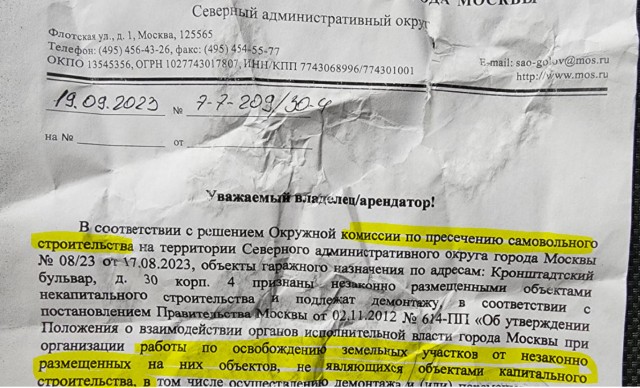 ОДА МОСКВЫ
Северный административный округ
Флотская ул., д. 1, Москва, 125565
Телефон: (495) 456-43-26, факс: (495) 454-55-77
ОКПО 13545356, ОГРН 1027743017807, ИНН/КПП 7743068996/774301001
E-mail: sao-golov@mos.ru
http://www.mos.ru
19.09.2023 № 7-7-209/30-4
на № от
Уважаемый владелец/арендатор!
В соответствии с решением Окружной комиссии по пресечению самовольного
строительства на территории Северного административного округа города Москвы
№ 08/23 от 17.08.2023, объекты гаражного назначения по адресам: Кронштадтский
бульвар, д. 30 корп. 4 признаны незаконно размещенными объектами
некапитального строительства и подлежат демонтажу, в соответствии с
постановлением Правительства Москвы от 02.11.2012 № 614-ПП «Об утверждении
Положения о взаимодействии органов исполнительной власти города Москвы при
организации работы по освобождению земельных участков от незаконно
размещенных на них объектов, не являющихся объектами капитального
строительства, в том числе осуществлению демонтажа и (или)